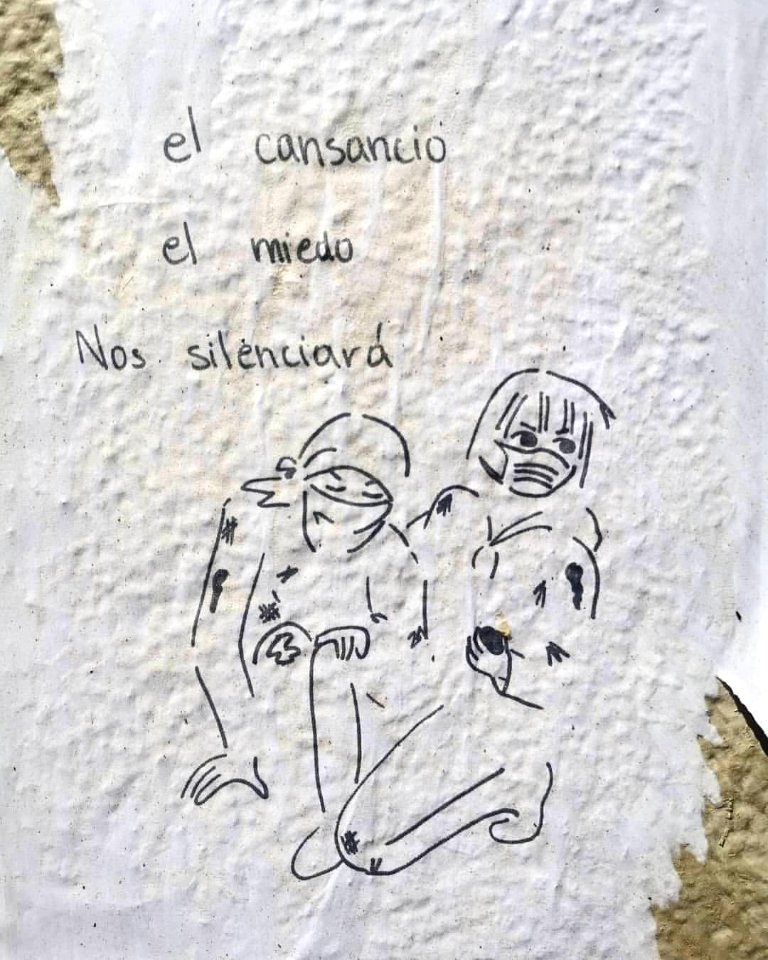 el cansancio
el miedo
Nos silenciará